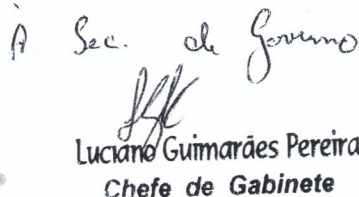 À Sec. de Governo
Luciano Guimarães Pereira
Chefe de Gabinete